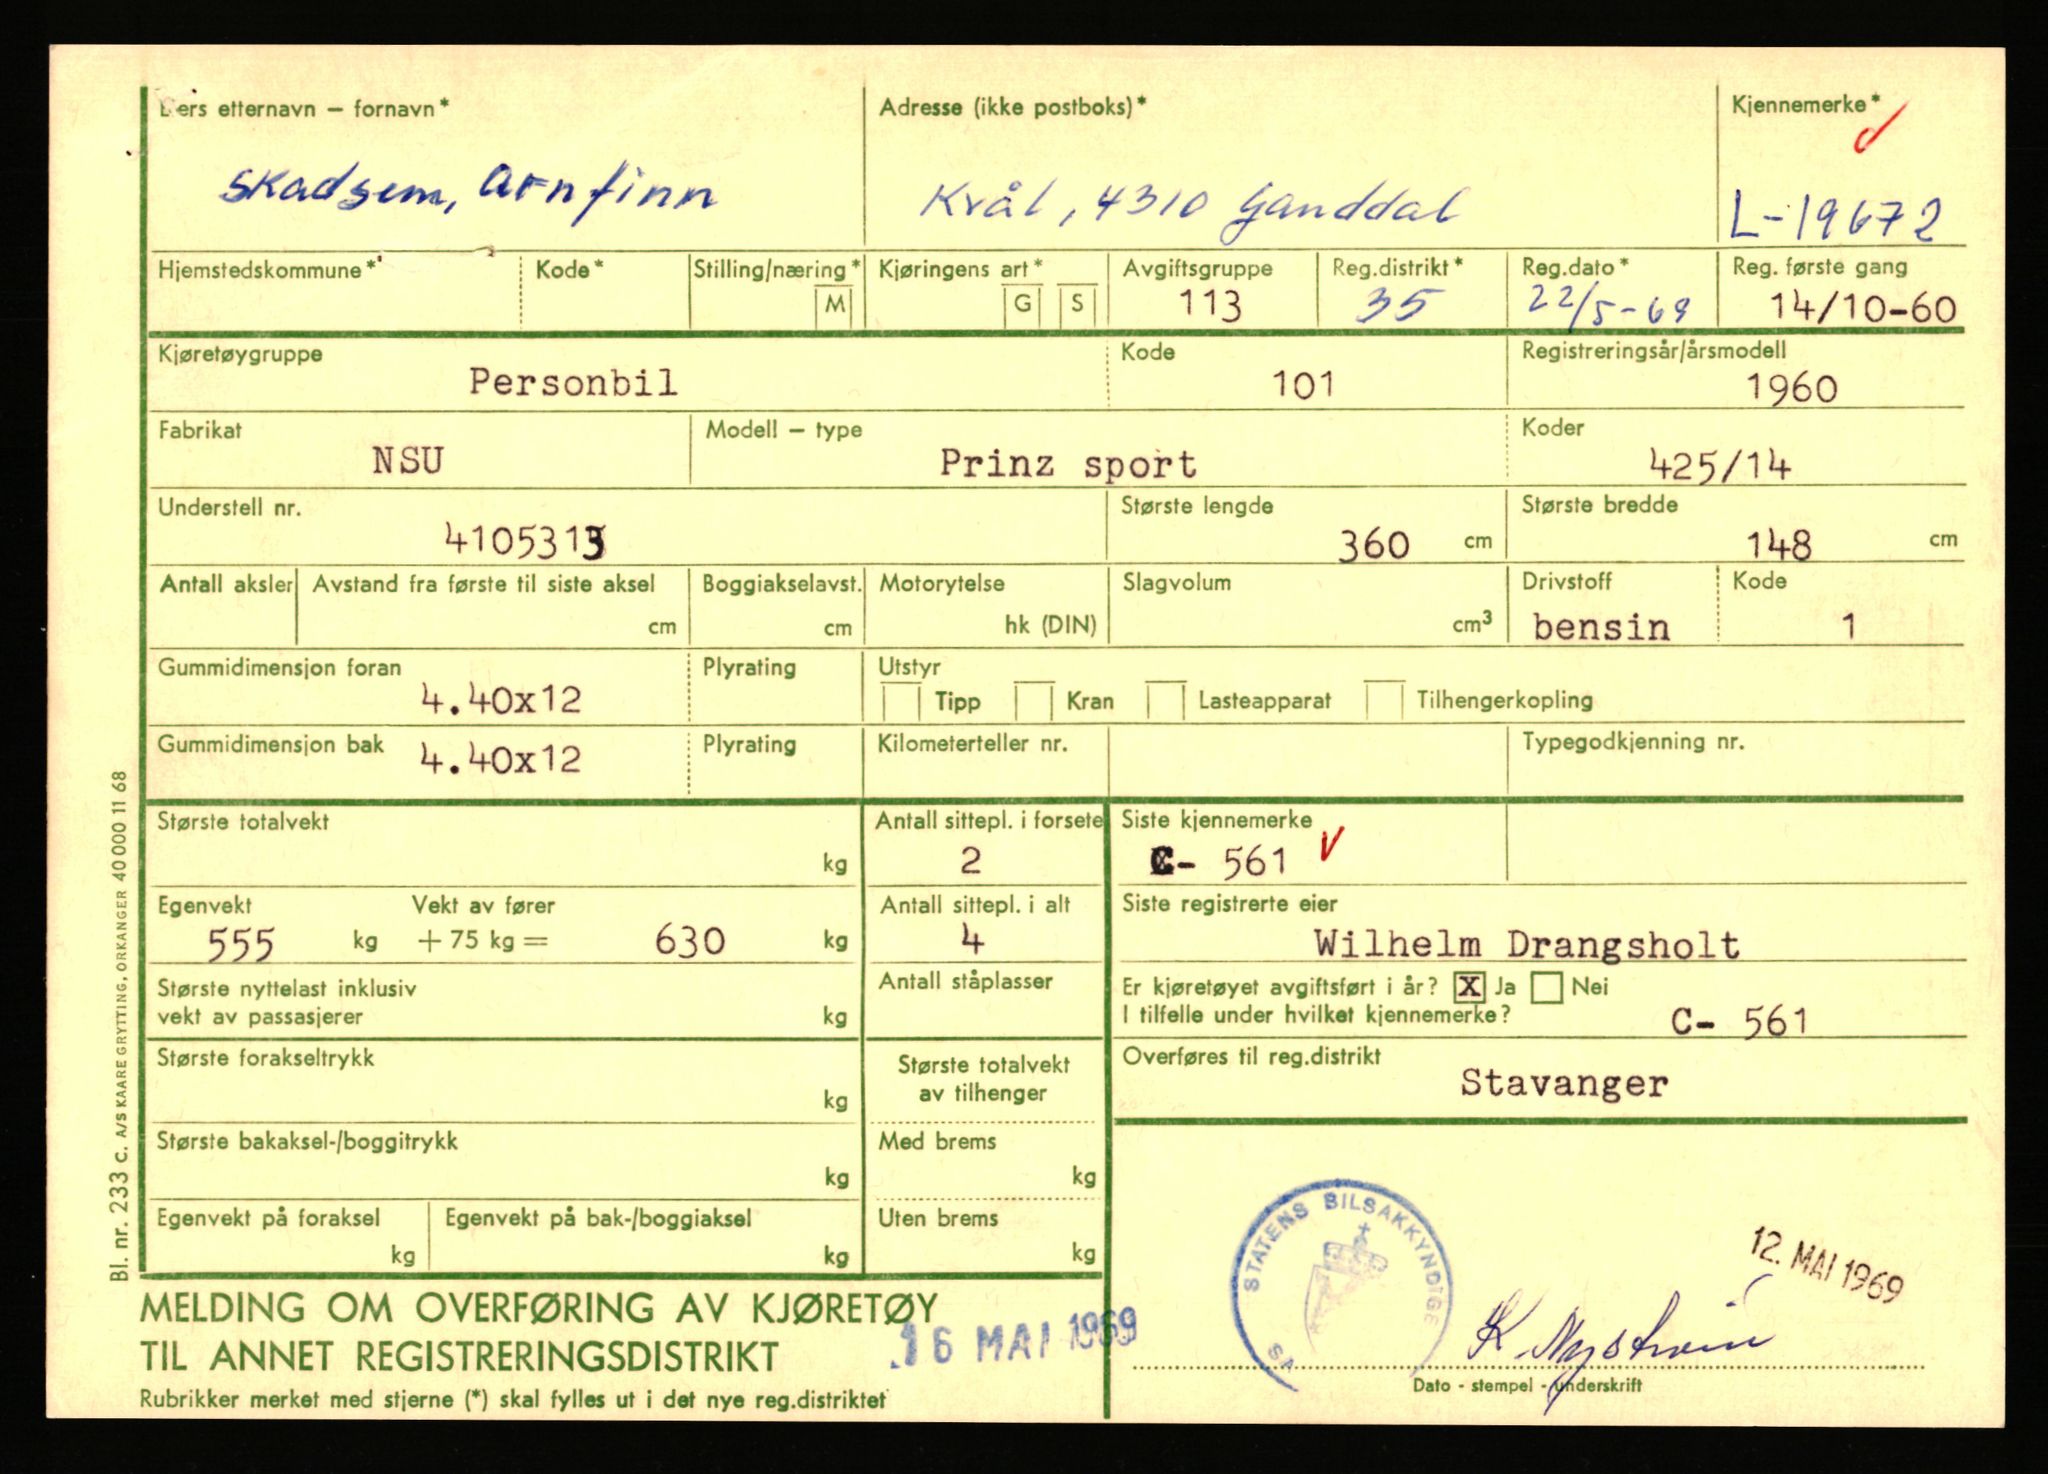 Eiers etternavn – fornavn* Adresse (ikke postboks)* Kjennemerke*
Skadsem, Arnfinn Kvål, 4310 Ganddal L-19672
Hjemstedskommune* Kode* Stilling/næring* Kjøringens art* Avgiftsgruppe Reg.distrikt* Reg.dato* Reg. første gang
M G S 113 35 22/5-69 14/10-60
Kjøretøygruppe Kode Registreringsår/årsmodell
Personbil 101 1960
Fabrikat Modell – type Koder
NSU Prinz sport 425/14
Understell nr. Største lengde Største bredde
4105313 360 cm 148 cm
Antall aksler Avstand fra første til siste aksel Boggiakselavst. Motorytelse Slagvolum Drivstoff Kode
cm cm hk (DIN) cm³ bensin 1
Gummidimensjon foran Plyrating Utstyr
4.40x12 Tipp Kran Lasteapparat Tilhengerkopling
Gummidimensjon bak Plyrating Kilometerteller nr. Typegodkjenning nr.
4.40x12
Største totalvekt Antall sittepl. i forsete Siste kjennemerke
kg 2 C- 561
Egenvekt Vekt av fører Antall sittepl. i alt Siste registrerte eier
555 kg + 75 kg = 630 kg 4 Wilhelm Drangsholt
Største nyttelast inklusiv Antall ståplasser Er kjøretøyet avgiftsført i år? X Ja Nei
vekt av passasjerer kg I tilfelle under hvilket kjennemerke? C- 561
Største forakseltrykk Største totalvekt Overføres til reg.distrikt
kg av tilhenger Stavanger
Største bakaksel-/boggitrykk Med brems
kg kg
Egenvekt på foraksel Egenvekt på bak-/boggiaksel Uten brems
kg kg kg
STATENS BILSAKKYNDIGE
SA
12. MAI 1969
MELDING OM OVERFØRING AV KJØRETØY
TIL ANNET REGISTRERINGSDISTRIKT
16 MAI 1969
K. Nystrøm
Rubrikker merket med stjerne (*) skal fylles ut i det nye reg.distriktet
Dato - stempel - underskrift
Bl. nr. 233 C. A/S KAARE GRYTTING, ORKANGER 40 000 11 68